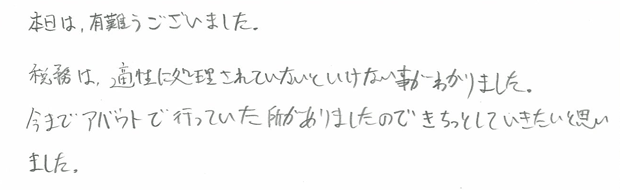 本日は,有難うございました。
税務は,適性に処理されていないといけない事がわかりました。
今までアバウトで行っていた所がありましたのできちっとしていきたいと思い
ました。